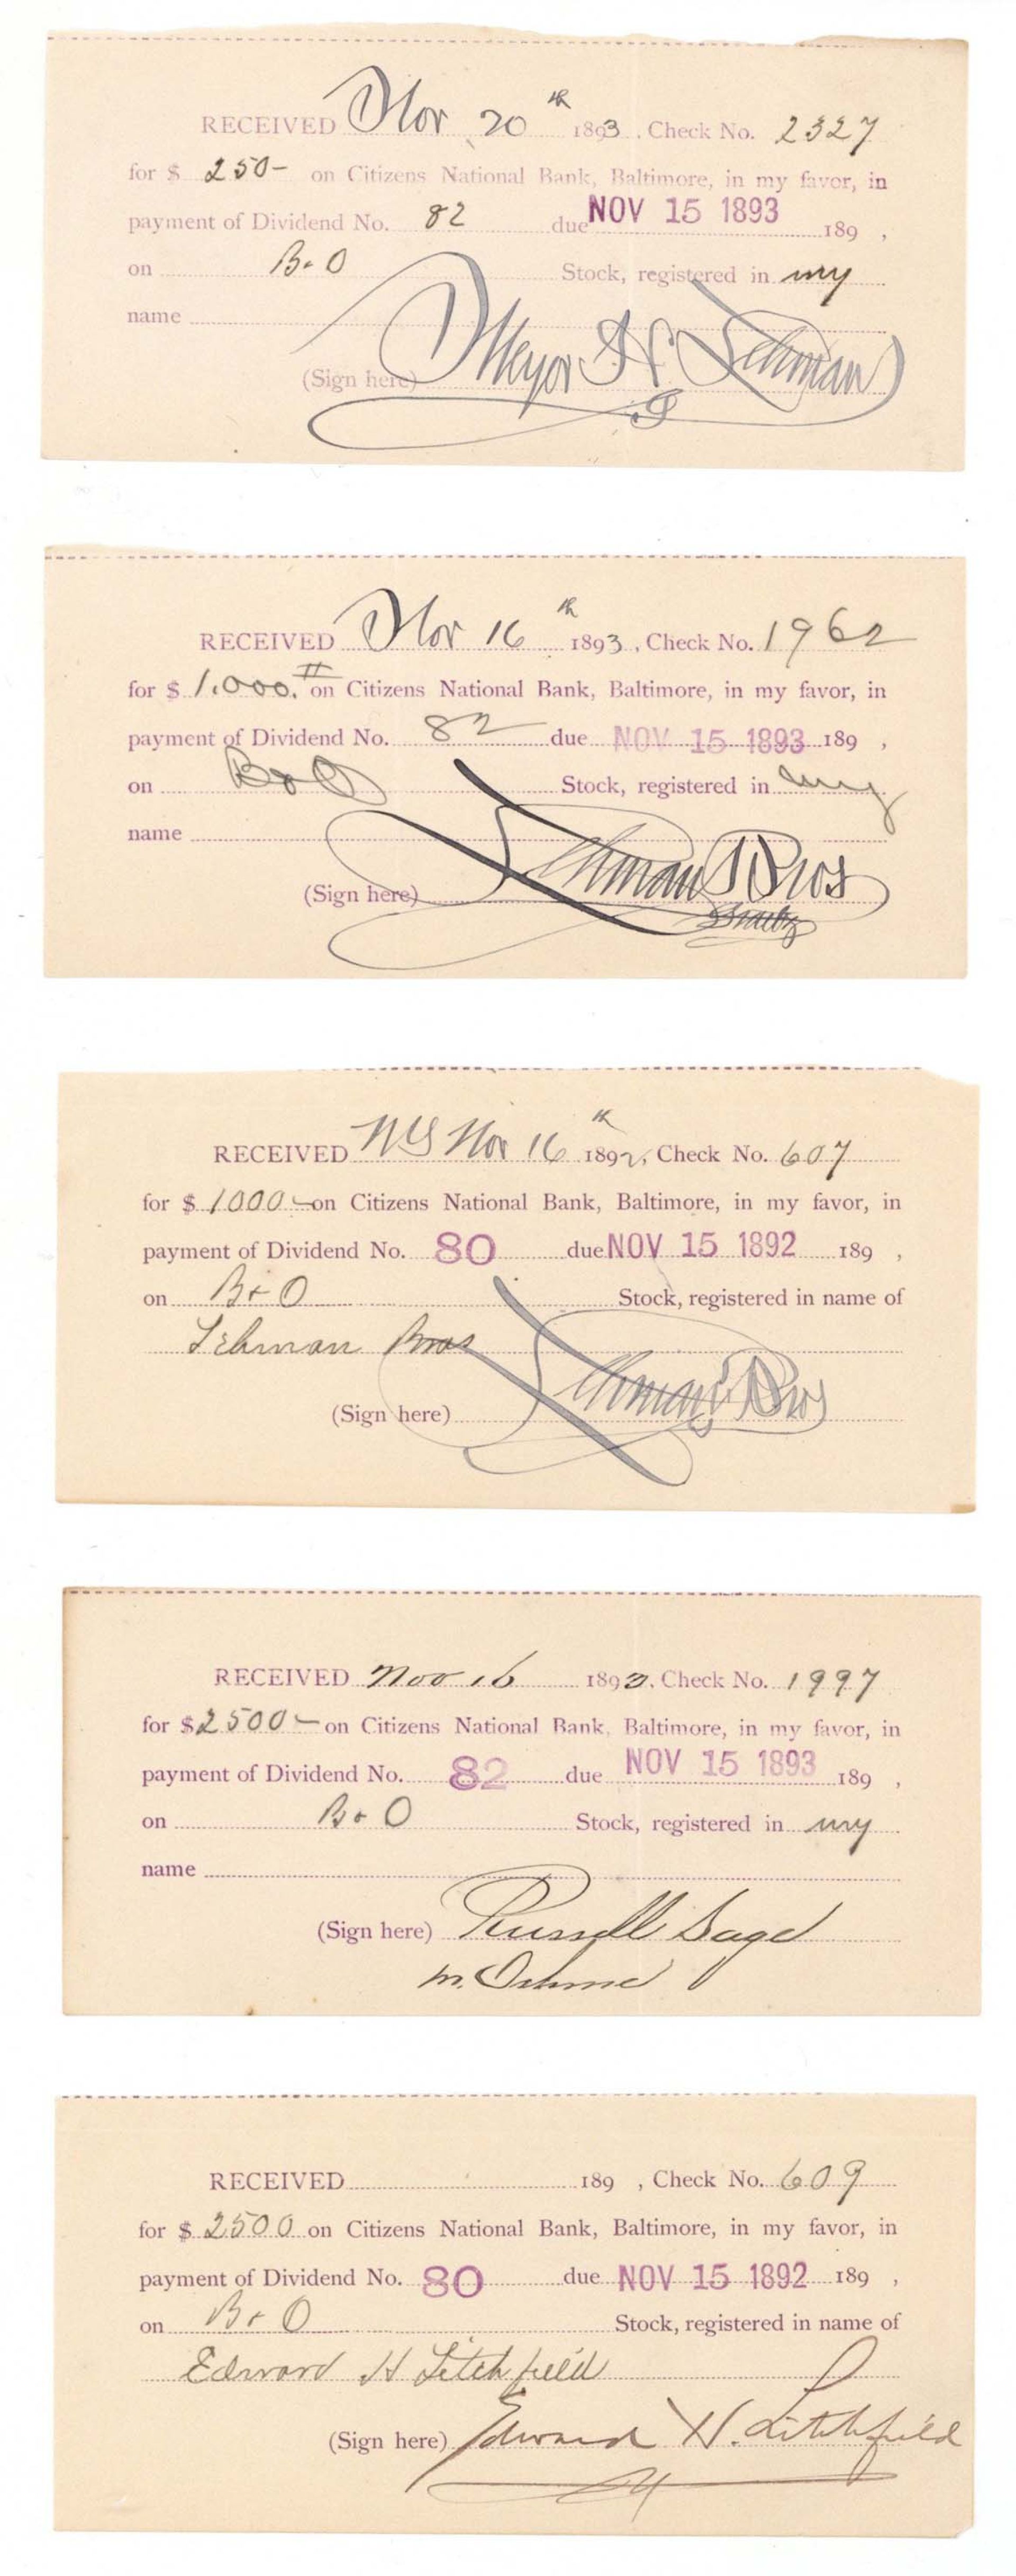 RECEIVED Nov 20th 1893. Check No. 2327
for $ 250- on Citizens National Bank, Baltimore, in my favor, in
payment of Dividend No. 82 due NOV 15 1893 189 ,
on B&O Stock, registered in my
name
(Sign here) Meyer H Lehman
RECEIVED Nov 16th 1893, Check No. 1962
for $ 1.000. on Citizens National Bank, Baltimore, in my favor, in
payment of Dividend No. 82 due NOV 15 1893 189 ,
on B&O Stock, registered in my
name
(Sign here) Lehman Bros
RECEIVED NY Nov 16th 1892, Check No. 607
for $ 1000- on Citizens National Bank, Baltimore, in my favor, in
payment of Dividend No. 80 due NOV 15 1892 189 ,
on B&O Stock, registered in name of
Lehman Bros
(Sign here) Lehman Bros
RECEIVED Nov 16 1893. Check No. 1997
for $ 2500- on Citizens National Bank, Baltimore, in my favor, in
payment of Dividend No. 82 due NOV 15 1893 189 ,
on B&O Stock, registered in my
name
(Sign here) Russell Sage
RECEIVED 189 , Check No. 609
for $ 2500 on Citizens National Bank, Baltimore, in my favor, in
payment of Dividend No. 80 due NOV 15 1892 189 ,
on B&O Stock, registered in name of
Edward H Litchfield
(Sign here) Edward H. Litchfield